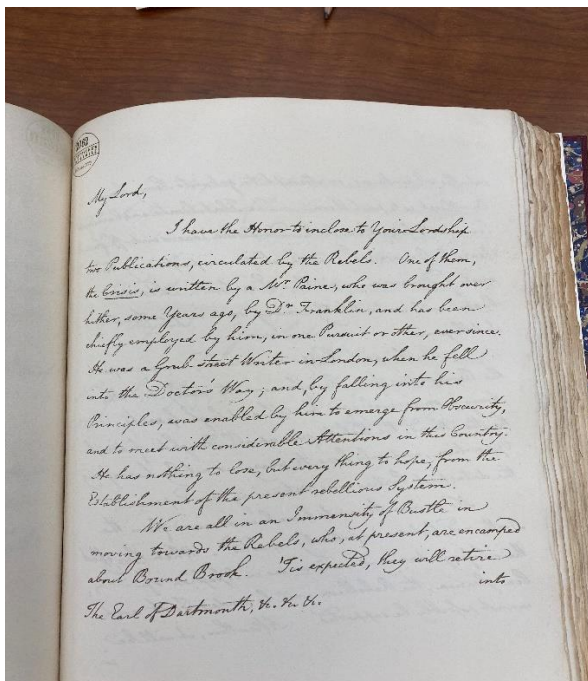 My Lord,
I have the Honor to inclose to Your Lordship
two Publications, circulated by the Rebels. One of them,
the Crisis, is written by a Mr. Paine, who was brought over
hither, some Years ago, by Dr. Franklin, and has been
chiefly employed by him, in one Pursuit or other, ever since.
He was a Grub-street Writer in London, when he fell
into the Doctor's Way; and, by falling into his
Principles, was enabled by him to emerge from Obscurity,
and to meet with considerable Attentions in this Country.
He has nothing to lose, but every thing to hope, from the
Establishment of the present rebellious System.
We are all in an Immensity of Bustle in
moving towards the Rebels, who, at present, are encamped
about Bound Brook. 'Tis expected, they will retire
into
The Earl of Dartmouth, &c. &c. &c.